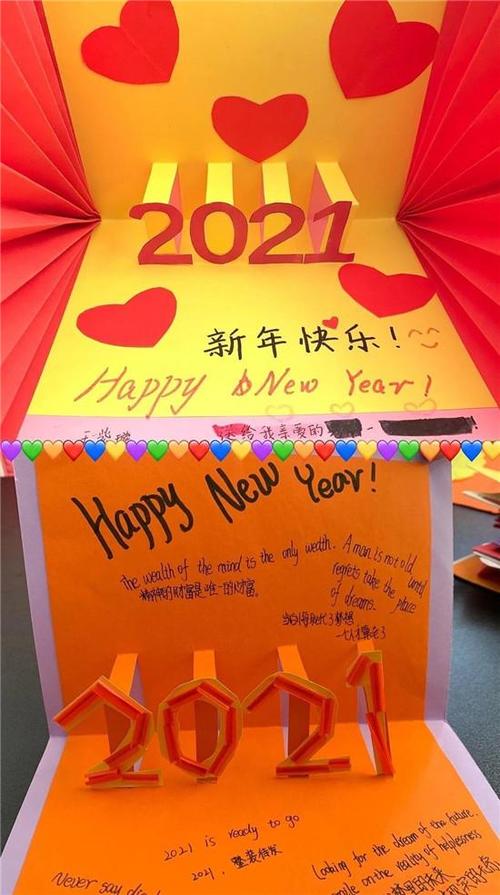 2021
新年快乐!
Happy New Year!
送给我亲爱的
Happy New Year!
the wealth of the mind is the only wealth.
精神的财富是唯一的财富。
A man is not old until
regrets take the place
of dreams.
2021
2021 is ready to go
2021, 整装待发
Never say
Looking for the dream of the future.
on the reality of helplessness